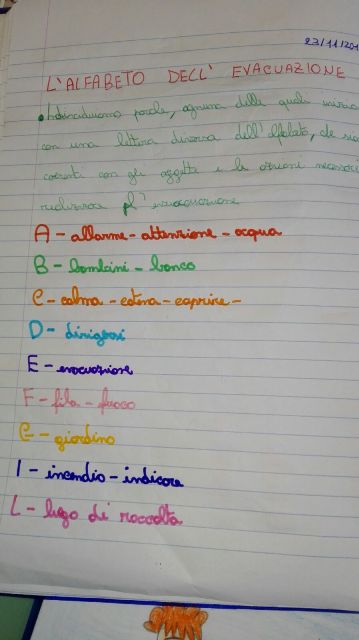 23/11/201
L'ALFABETO DELL' EVACUAZIONE
Individuiamo parole, ognuna delle quali inizia
con una lettera diversa dell'alfabeto, che sia
coerente con gli oggetti e le azioni necessarie
l'evacuazione
A - allarme - attenzione - acqua
B - bambini - banco
C - calma - catena - caprire -
D - dirigersi
E - evacuazione
F - fila - fuoco
G - giardino
I - incendio - indicare
L - logo di raccolta